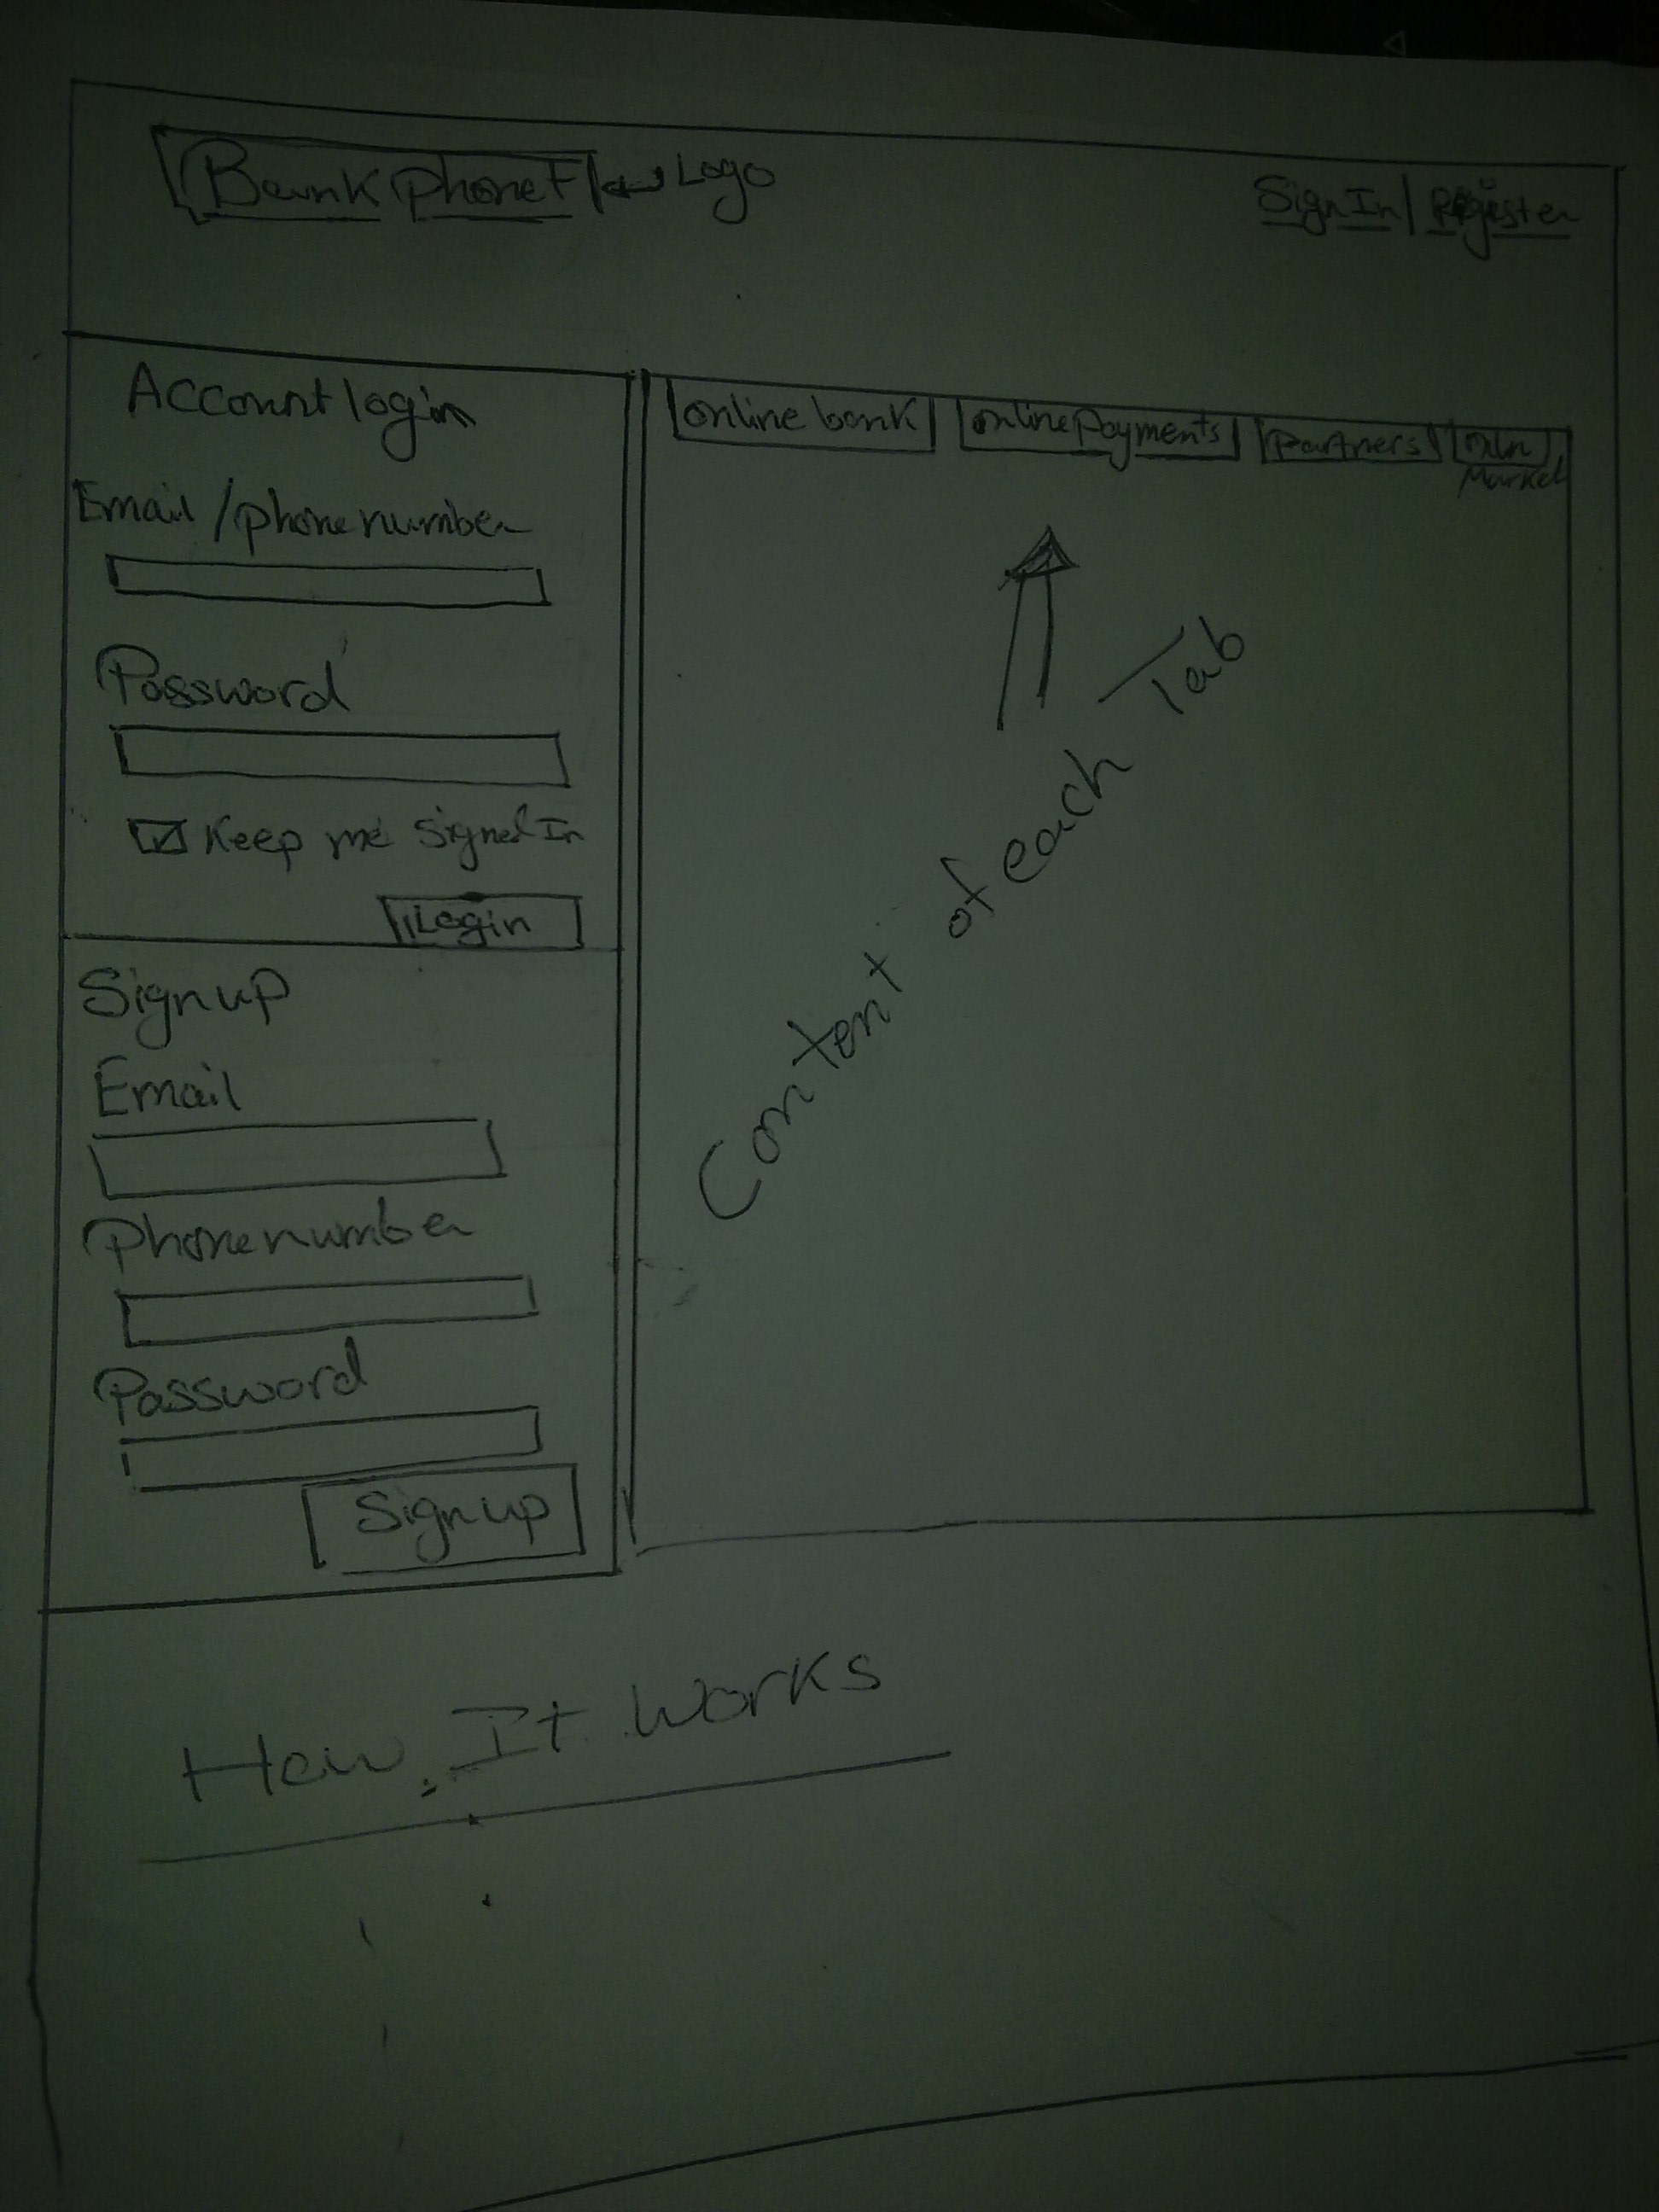 Bank phonet Logo
Sign In | Register
Account login
Email / phone number
Password
Keep me signed In
Login
Sign up
Email
Phone number
Password
Sign up
online bank
online payments
partners
Market
Content of each Tab
How It works